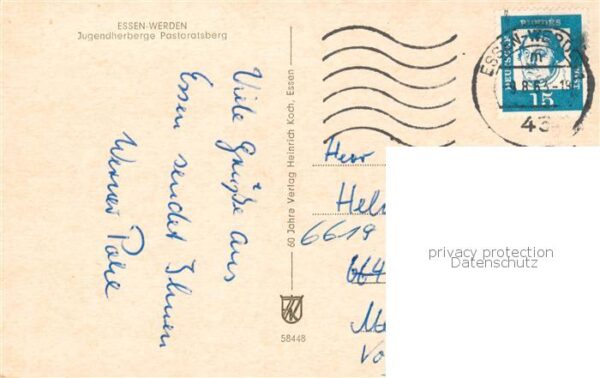 ESSEN-WERDEN
Jugendherberge Pastoratsberg
Viele Grüße aus
Essen sendet Ihnen
Werner
60 Jahre Verlag Heinrich Koch, Essen
58448
DEUTSCHE
BUNDES
POST
15
ESSEN-WERDEN
43
Herr
6619
664
privacy protection
Datenschutz